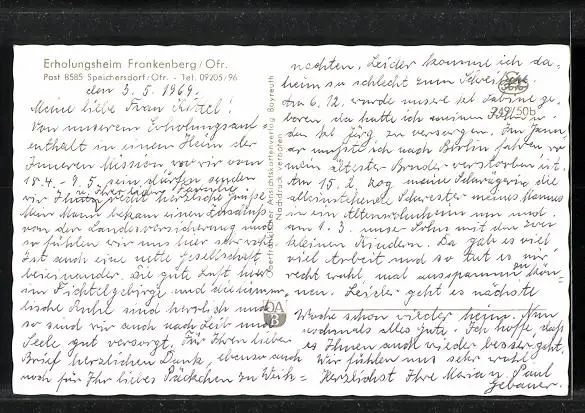 Erholungsheim Frankenberg/Ofr.
Post 8585 Speichersdorf/Ofr. - Tel. 09205/96
den 3. 5. 1969.
Meine liebe Frau Kittel!
Von unserem Erholungsauf =
enthalt in einem Heim der
Inneren Mission wo wir vom
18.4. - 9.5. sein dürfen senden
wir Ihnen u. Ihrer lieben Familie recht herzliche Grüße
Mein Mann bekam einen Zuschuß
von der Landesversicherung und
so fühlen wir uns hier sehr wohl
Ist auch eine nette Gesellschaft
beieinander. Die gute Luft hier
im Fichtelgebirge und die himm =
lische Ruhe sind herrlich und
so sind wir auch nach Leib und
Seele gut versorgt. Für Ihren lieben
Brief herzlichen Dank, ebenso auch
noch für Ihr liebes Päckchen zu Weih =
Oberfränkische Ansichtskartenverlag Bayreuth
Nachdruck verboten
OA
B
739/50b
nachten. Leider komme ich da=
heim so schlecht zum Schreiben.
Am 6.12. wurde unsre kl. Sabine ge=
boren da hatte ich meinen
den kl. Jörg zu versorgen. Im Janu=
ar mußte ich nach Berlin fahren wo
mein ältester Bruder verstorben ist.
Am 15. 2. zog meine Schwägerin die
alleinstehende Schwester meines Mannes
in ein Altenwohnheim um und
am 1. 3. unser Sohn mit den zwei
kleinen Kindern. Da gab es viel
viel Arbeit und so tut es mir
recht wohl mal ausspannen zu kön=
nen. Leider geht es nächste
Woche schon wieder heim. Nun
nochmals alles Gute. Ich hoffe daß
es Ihnen auch wieder besser geht.
Wir fühlen uns sehr wohl
Herzlichst Ihre Maria u. Paul
Gebauer.